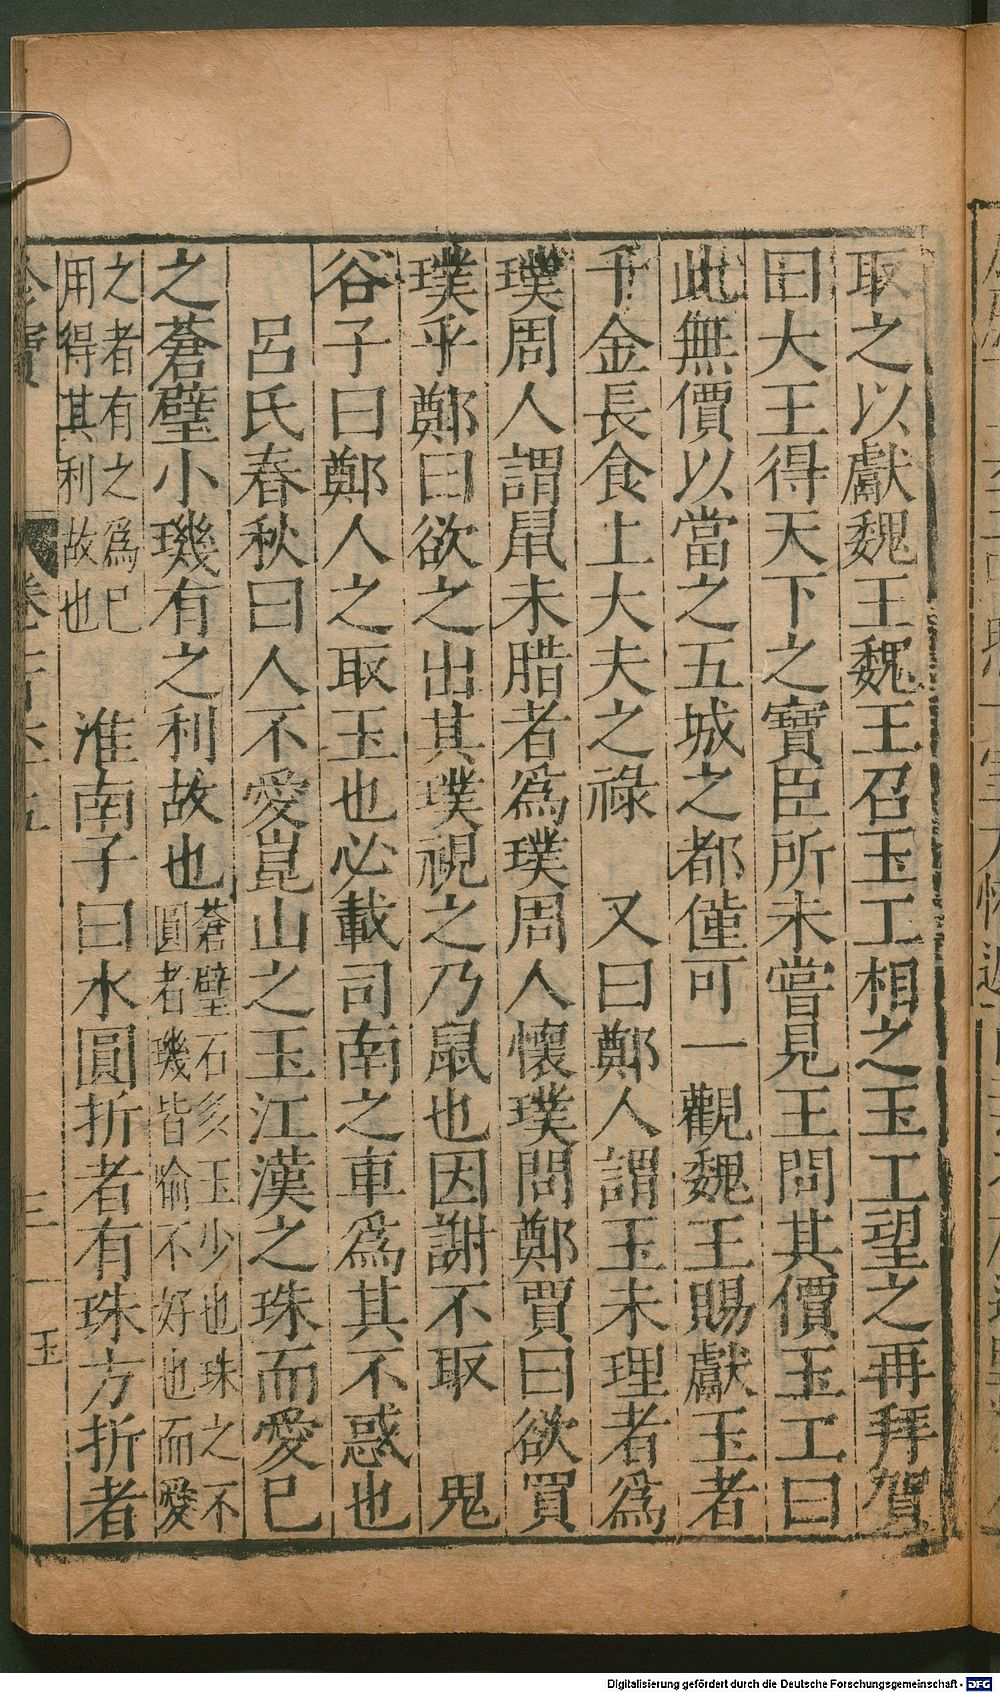 取之以獻魏王魏王召玉工相之玉工望之再拜賀
曰大王得天下之寶臣所未嘗見王問其價玉工曰
此無價以當之五城之都僅可一觀魏王賜獻玉者
千金長食上大夫之祿　又曰鄭人謂玉未理者爲
璞周人謂鼠未腊者爲璞周人懷璞問鄭賈曰欲買
璞乎鄭曰欲之出其璞視之乃鼠也因謝不取　鬼
谷子曰鄭人之取玉也必載司南之車爲其不惑也
呂氏春秋曰人不愛崑山之玉江漢之珠而愛巳
之蒼璧小璣有之利故也
蒼璧石多玉少也珠之不
圓者璣皆喻不好也而愛
之者有之爲巳
用得其利故也
淮南子曰水圓折者有珠方折者
珍寶
卷　五
三
玉
Digitalisierung gefördert durch die Deutsche Forschungsgemeinschaft - DFG